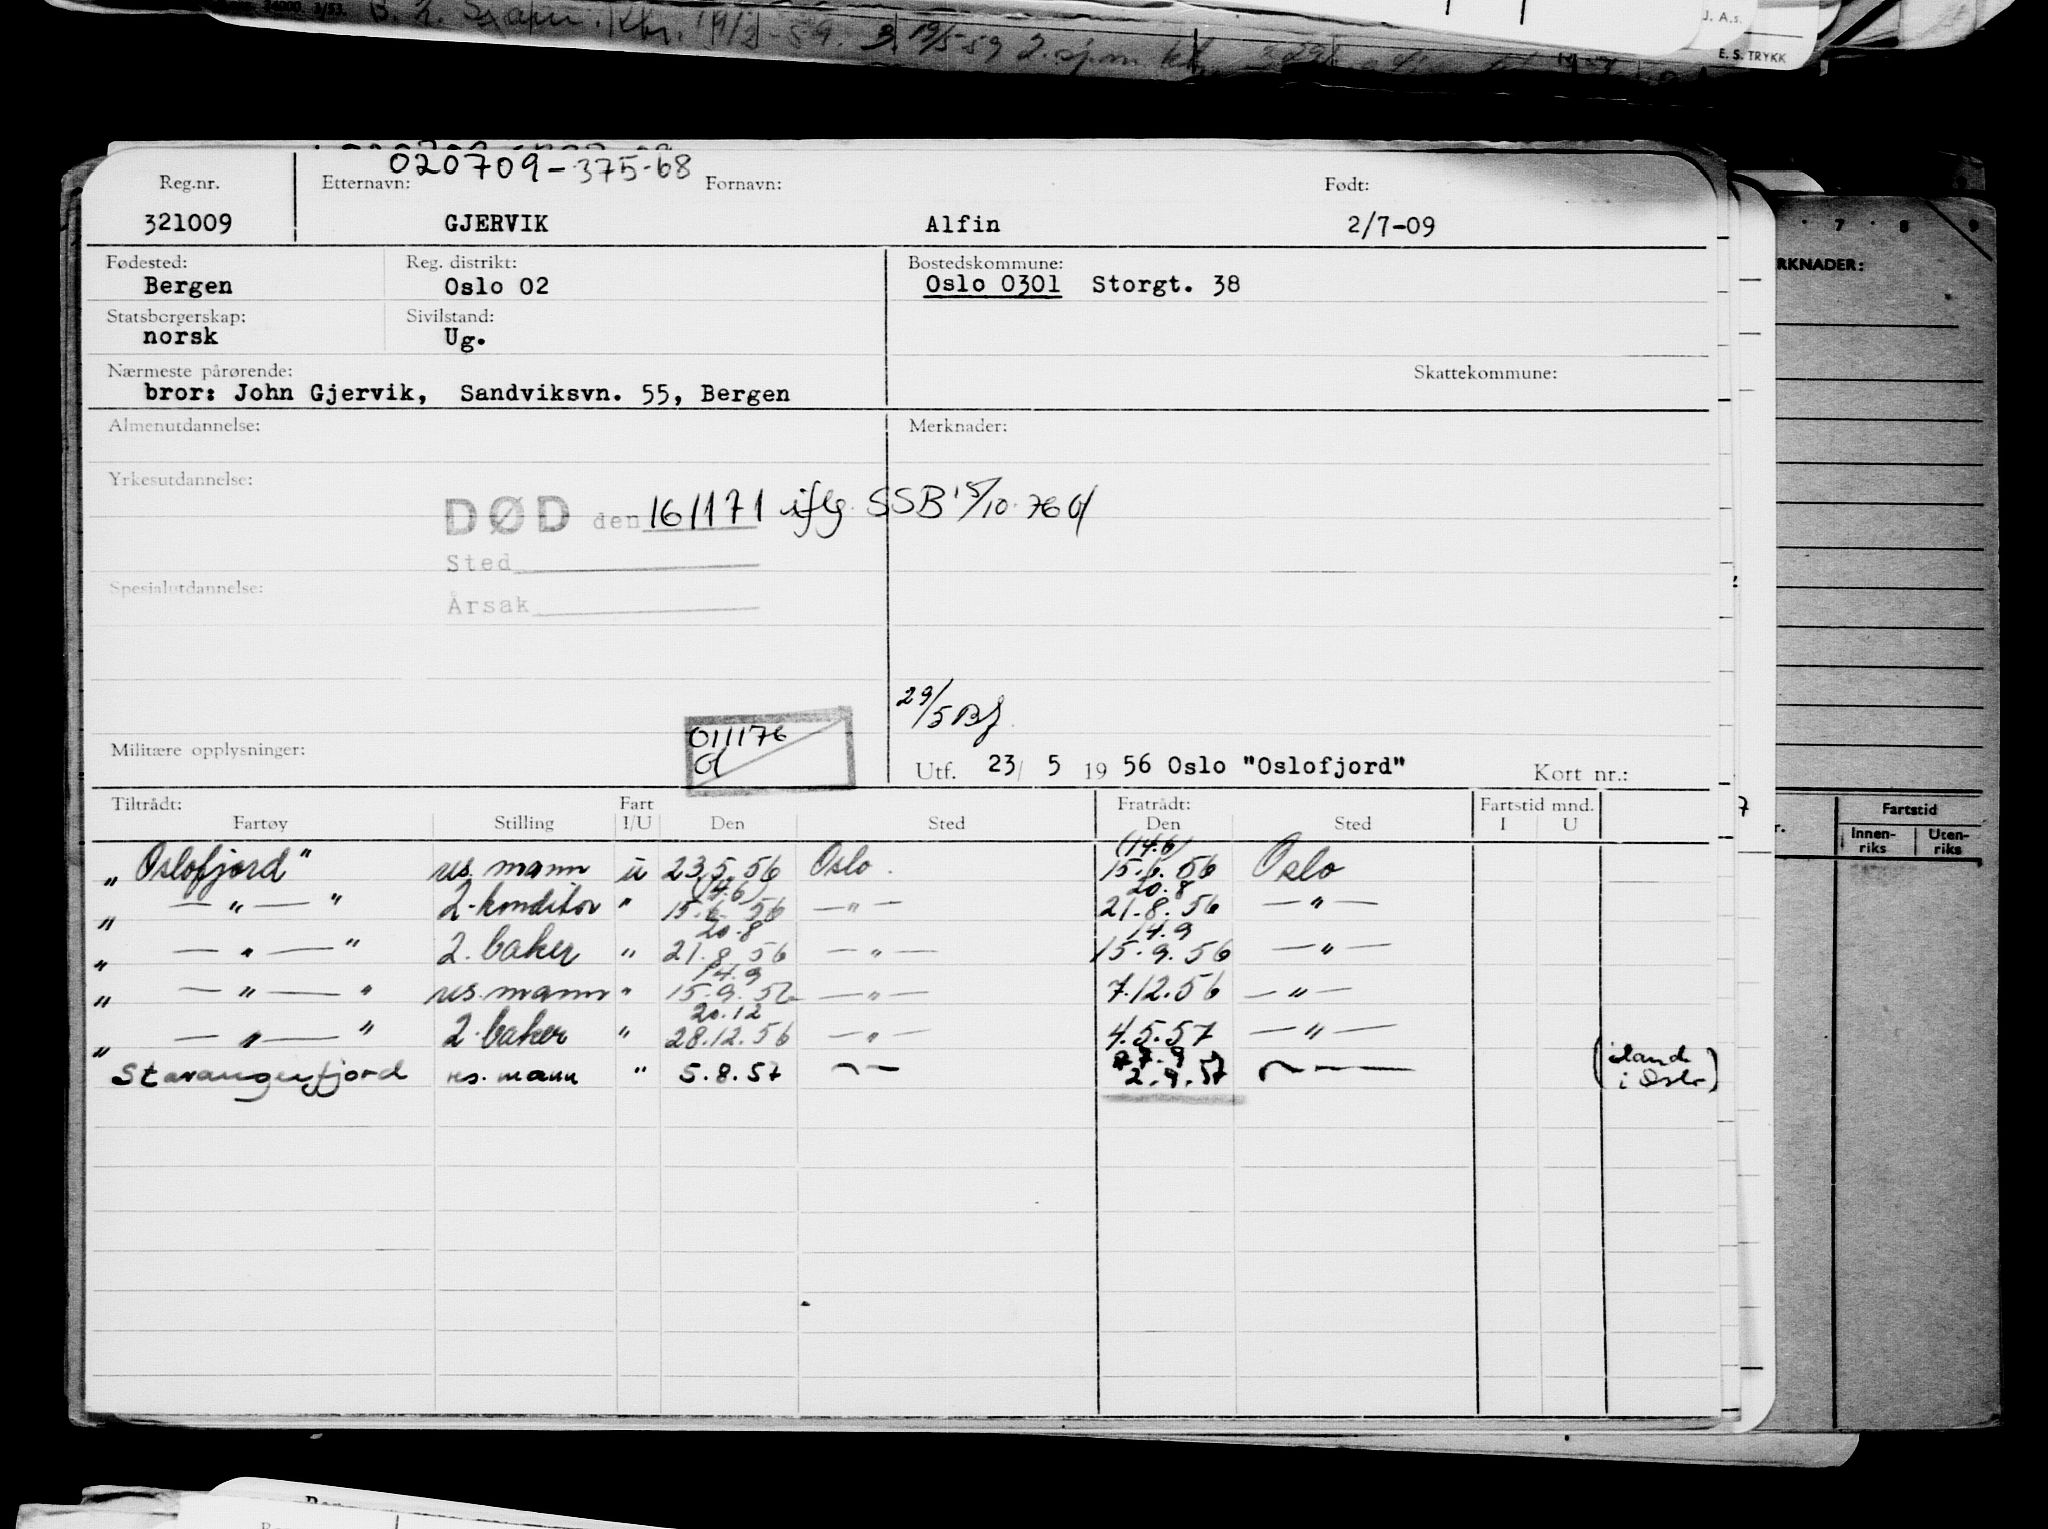 34000 3/53.
J. A.s.
E. S. TRYKK
020709-375-68
Reg.nr. Etternavn: Fornavn: Født:
321009 GJERVIK Alfin 2/7-09
Fødested: Reg. distrikt: Bostedskommune:
Bergen Oslo 02 Oslo 0301 Storgt. 38
Statsborgerskap: Sivilstand:
norsk Ug.
Nærmeste pårørende: Skattekommune:
bror: John Gjervik, Sandviksvn. 55, Bergen
Almenutdannelse: Merknader:
Yrkesutdannelse:
DØD den 161171 iflg. SSB 15/10.76
Sted
Spesialutdannelse:
Årsak
29/5
011176
Militære opplysninger:
Utf. 23/ 5 19 56 Oslo "Oslofjord" Kort nr.:
Tiltrådt: Fart Fratrådt: Fartstid mnd.
Fartøy Stilling I/U Den Sted Den Sted I U
(14.6)
„ Oslofjord" res. mann u 23.5.56 Oslo. 15.6.56 Oslo
(14.6) 20.8
„ — " — " 2. konditor " 15.6.56 — " — 21.8.56 — " —
20.8 14.9
„ — " — " 2. baker " 21.8.56 — " — 15.9.56 — " —
14.9
„ — " — " res. mann " 15.9.56 — " — 7.12.56 — " —
20.12
„ — " — " 2. baker " 28.12.56 — " — 4.5.57 — " —
Stavangerfjord res. mann " 5.8.57 — — 2.9.57 — — — (iland
i Oslo)
7 8 9
RKNADER:
Fartstid
Innen-
riks
Uten-
riks